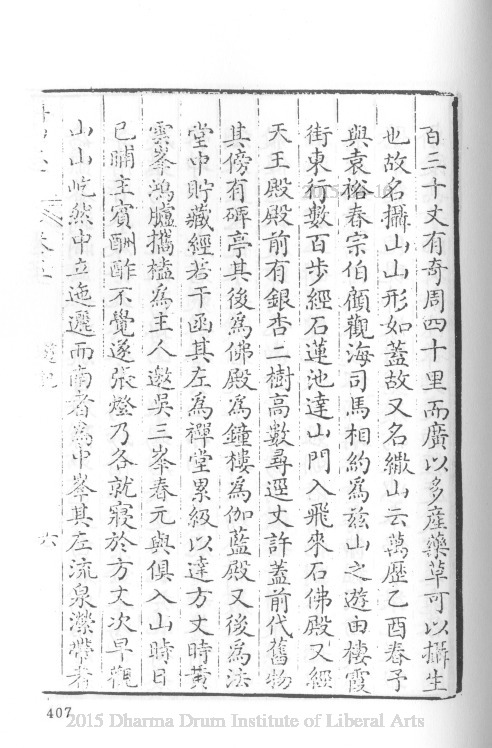 百三十丈有奇周四十里而廣以多產藥草可以攝生
也故名攝山山形如蓋故又名繖山云萬歷乙酉春予
與袁裕春宗伯顧觀海司馬相約為茲山之遊由棲霞
街東行數百步經石蓮池達山門入飛來石佛殿又經
天王殿殿前有銀杏二樹高數尋逕丈許蓋前代舊物
其傍有碑亭其後為佛殿為鐘樓為伽藍殿又後為法
堂中貯藏經若干函其左為禪堂累級以達方丈時黃
雲峯鴻臚攜榼為主人邀吳三峯春元與俱入山時日
已晡主賓酬酢不覺遂張燈乃各就寢於方丈次早觀
山山屹然中立迤邐而南者為中峯其左流泉濚帶者
六
407
2015 Dharma Drum Institute of Liberal Arts